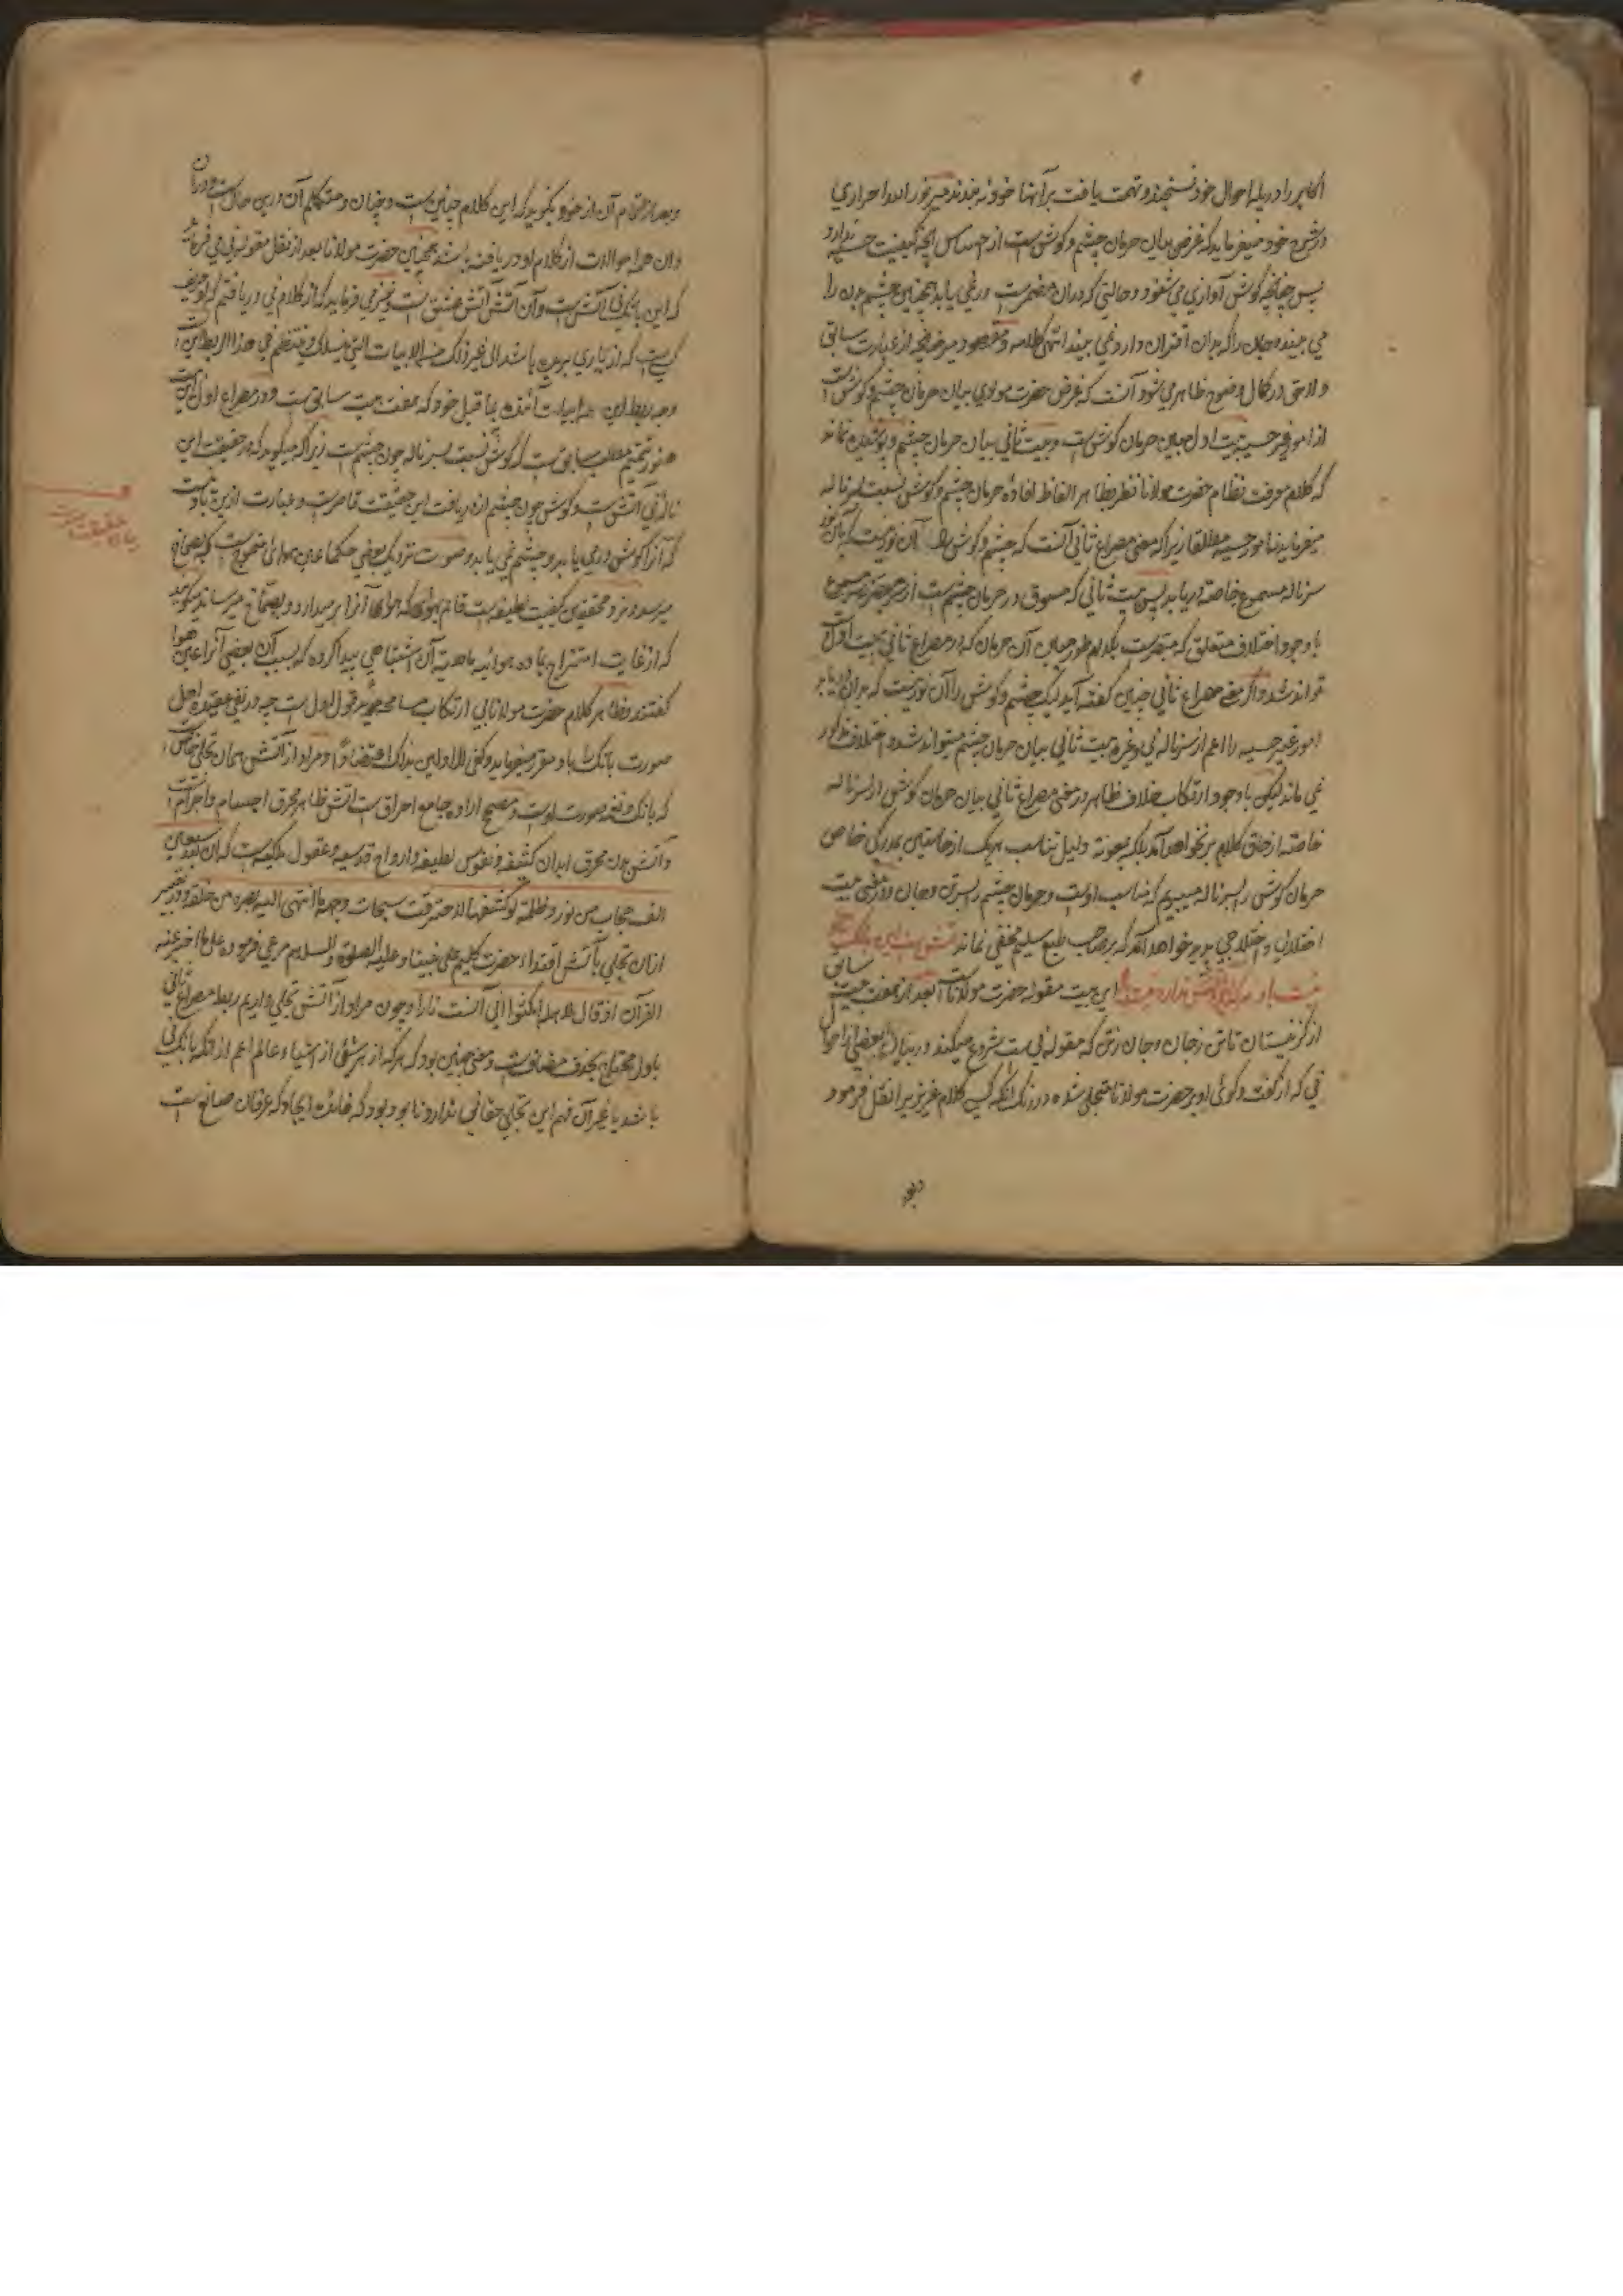 اکابر را دریا با احوال خود نسنجند و تهمت یافت بر آنها خود نه بندند میر نورالله احراری
در شرح خود میفرماید که غرض بیان حرمان چشم و گوش است از احساس آنچه کیفیت حسی ندارد
پس چنانچه گوش آوازی می شنود و حالتی که دران مضمرست در نمی یابد همچنین چشم بدن را
می بیند و جان را که بدان اقتران دارد نمی بیند انتهی کلامه و مقصود میر چنانچه از عبارت سابق
و لاحق در کمال وضوح ظاهر می شود آنست که غرض حضرت مولوی بیان حرمان چشم و گوش است
از امور غیر حسیه بیت اول مبین حرمان گوش است و بیت ثانی بیان حرمان چشم و پوشیده نماند
که کلام معرفت نظام حضرت مولانا نظر بظاهر الفاظ افاده حرمان چشم و گوش نسبت بسر ناله
میفرماید نه امور حسیه مطلقا زیرا که معنی مصراع ثانی آنست که چشم و گوش را آن نور نیست که بآن نور
سر ناله مسموع خاصه دریابد پس بیت ثانی که مسوق در حرمان چشم است از سر
با وجود اختلاف متعلق که مبصرست بکدام طور مبین آن حرمان که در مصراع ثانی بیت اول
تواند شد و اگر معنی مصراع ثانی چنین گفته آید لیک چشم و گوش را آن نور نیست که بدان دریابد
امور غیر حسیه را اعم از سر ناله نی و غیره بیت ثانی بیان حرمان چشم میتواند شد و اختلاف مذکور
نمی ماند لیکن با وجود ارتکاب خلاف ظاهر در معنی مصراع ثانی بیان حرمان گوش از سر ناله
خاصه از حاق کلام بر نخواهد آمد بلکه بمعونه دلیل تناسب هر یک از حاستین بمدرکی خاص
حرمان گوش را بسر ناله میبریم که مناسب اوست و حرمان چشم را بسر تن و جان و در معنی بیت
اختلالی و اختلاجی پدید خواهد آمد که بر صاحب طبع سلیم مخفی نماند آتش است این بانگ نای و
نیست باد هر که این آتش ندارد نیست باد این بیت مقوله حضرت مولاناست بعد از معنی بیت سابق
از کز نیستان تا تن ز جان و جان ز تن که مقوله نی ست شروع میکند در بیان بعضی از احوال
نی که از گفت و گوی او بر حضرت مولانا متجلی شده در رنگ آنکه کسی کلام عزیزی را نقل فرمود
و بعد
و بعد از اتمام آن از خود بگوید که این کلام چنین ست و چنان و متکلم آن درین حال است و دران
و آن همه حالات از کلام او دریافته باشد همچنین حضرت مولانا بعد از نقل مقوله نی می فرماید
که این بانگ نی آتش ست و آن آتش آتش عشق ست و نیز می فرماید که از کلام نی دریافتم که او حریف
کسیست که از یاری بریده باشد الی غیر ذلک من الابیات التی ینسلک و ینتظم فی هذا الربط این است
وجه ربط این همه ابیات آتیه بما قبل خود که هفت بیت سابق ست و در مصراع اول این بیت
هنوز تتمیم مطلب سابق ست که گوش نسبت بسر ناله چون چشم ست زیرا که میگوید که حقیقت این
ناله نی آتش ست و گوش چون چشم از دریافت این حقیقت قاصر ست و عبارت ازین باد نیست
که آنرا گوش درمی یابد و چشم نمی یابد و صوت نزدیک بعضی حکما عین هوای متموج است که بصماخ
میرسد و نزد محققین کیفیت لطیفه ست قائم بهوا که هوا آنرا برمیدارد و بصماخ میرساند میگویند
که از غایت امتزاج بماده هوائیه ماهیت آن اشتباهی پیدا کرده که بسبب آن بعضی آنرا عین هوا
گفتند و ظاهر کلام حضرت مولانا بی ارتکاب مسامحه مؤید قول اول ست چه در نفی عقیده اهل
صورت بانگ را باد مقرر میفرماید و کفی للاولین بذاک اعتضادا و مراد از آتش همان تجلی خاص است
که بانگ و نغمه صورت اوست و مصحح اراده جامع احراق ست آتش ظاهر محرق اجسام و اجرام است
و آتش بدن محرق ابدان کثیفه و نفوس لطیفه و ارواح قدسیه و عقول ملکیه ست که ان لله سبعین
الف حجاب من نور و ظلمة لو کشفها لاحترقت سبحات وجهه ما انتهی الیه بصره من خلقه و در تعبیر
ازان تجلی بآتش اقتداء حضرت کلیم علی نبینا و علیه الصلوة والسلام مرعی فرموده علی ما اخبر عنه
القرآن اذ قال لاهله امکثوا انی آنست نارا و چون مراد از آتش تجلی داریم ربط مصراع ثانی
باول محتاج بحذف مضافست و معنی چنین بود که هر که از هر شیء از اشیاء عالم اعم از آنکه بانگ نی
باشد یا غیر آن فهم این تجلی حقانی ندارد نابود بود که غایت ایجاد که عرفان صانع ست
بیان حقیقت صوت